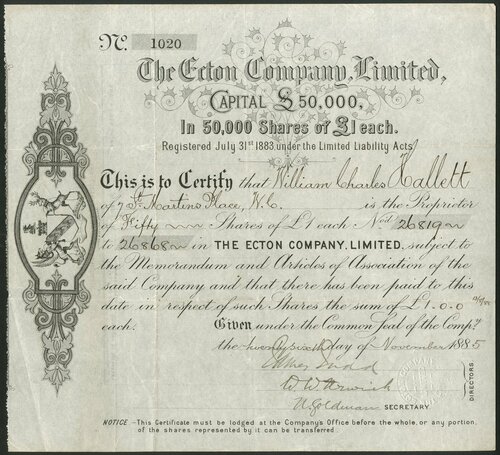 No. 1020
The Ecton Company, Limited,
CAPITAL £50,000,
In 50,000 Shares of £1 each.
Registered July 31st 1883, under the Limited Liability Acts
This is to Certify that William Charles Hallett
of 7 St. Martins Place, W.C. is the Proprietor
of Fifty Shares of £1 each Nos. 26819
to 26868 in THE ECTON COMPANY, LIMITED, subject to
the Memorandum and Articles of Association of the
said Company and that there has been paid to this
date in respect of such Shares the sum of £1.0.0
each. Given under the Common Seal of the Compy.
the twenty sixth day of November 1885
DIRECTORS
SECRETARY
NOTICE - This Certificate must be lodged at the Company's Office before the whole, or any portion,
of the shares represented by it can be transferred